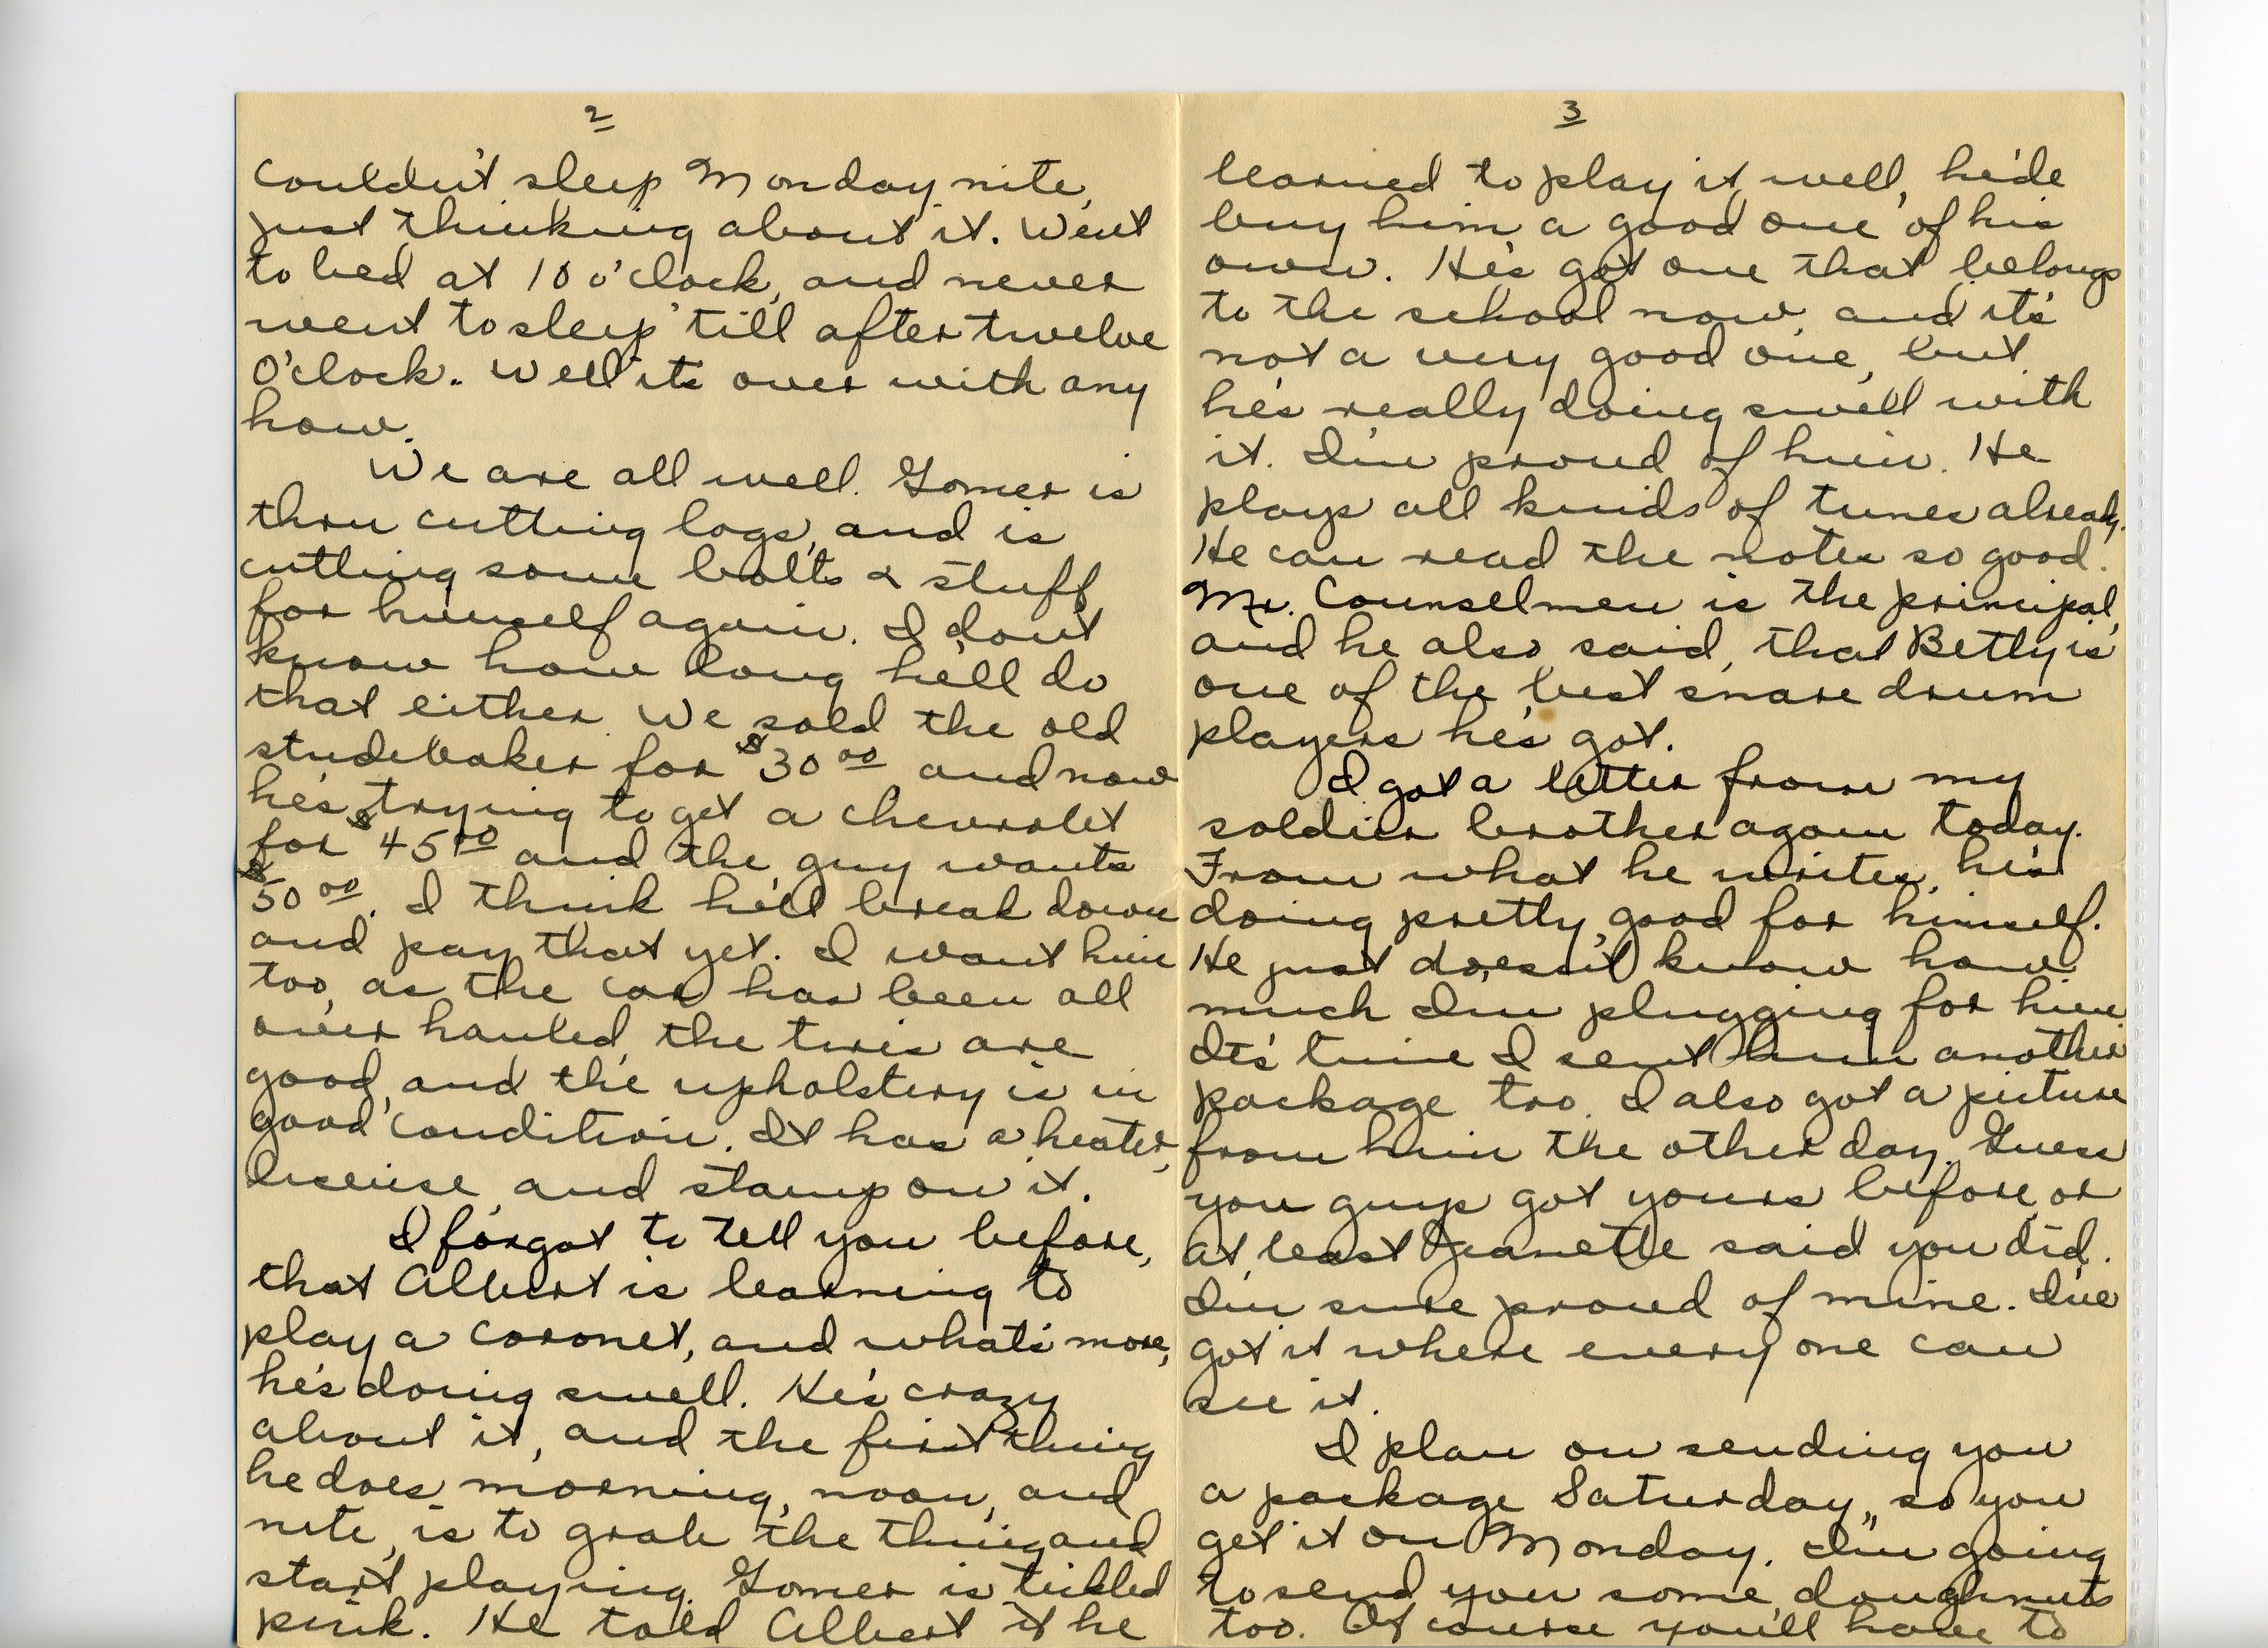 2
couldn't sleep Monday nite,
just thinking about it. Went
to bed at 10 o'clock, and never
went to sleep till after twelve
O'clock. Well its over with any
how.
We are all well. Gomer is
thru cutting logs, and is
cutting some bolts & stuff
for himself again. I don't
know how long he'll do
that either. We sold the old
studebaker for $30.00 and now
he's trying to get a chevrolet
for $45.00 and the guy wants
$50.00. I think he'll break down
and pay that yet. I want him
too, as the car has been all
over hauled, the tires are
good, and the upholstery is in
good condition. It has a heater,
license, and stamp on it.
I forgot to tell you before,
that Albert is learning to
play a coronet, and what's more,
he's doing swell. He's crazy
about it, and the first thing
he does morning, noon, and
nite, is to grab the thing and
start playing. Gomer is tickled
pink. He told Albert if he
3
learned to play it well, he'de
buy him a good one of his
own. He's got one that belongs
to the school now, and it's
not a very good one, but
he's really doing swell with
it. I'm proud of him. He
plays all kinds of tunes already.
He can read the notes so good.
Mr. Counselmen is the principal,
and he also said, that Betty is
one of the best snare drum
players he's got.
I got a letter from my
soldier brother again today.
From what he writes, he's
doing pretty good for himself.
He just doesn't know how
much I'm plugging for him.
It's time I sent him another
package too. I also got a picture
from him the other day. Guess
you guys got yours before, or
at least Jeanette said you did.
I'm sure proud of mine. I've
got it where every one can
see it.
I plan on sending you
a package Saturday, so you
get it on Monday. I'm going
to send you some doughnuts
too. Of course you'll have to